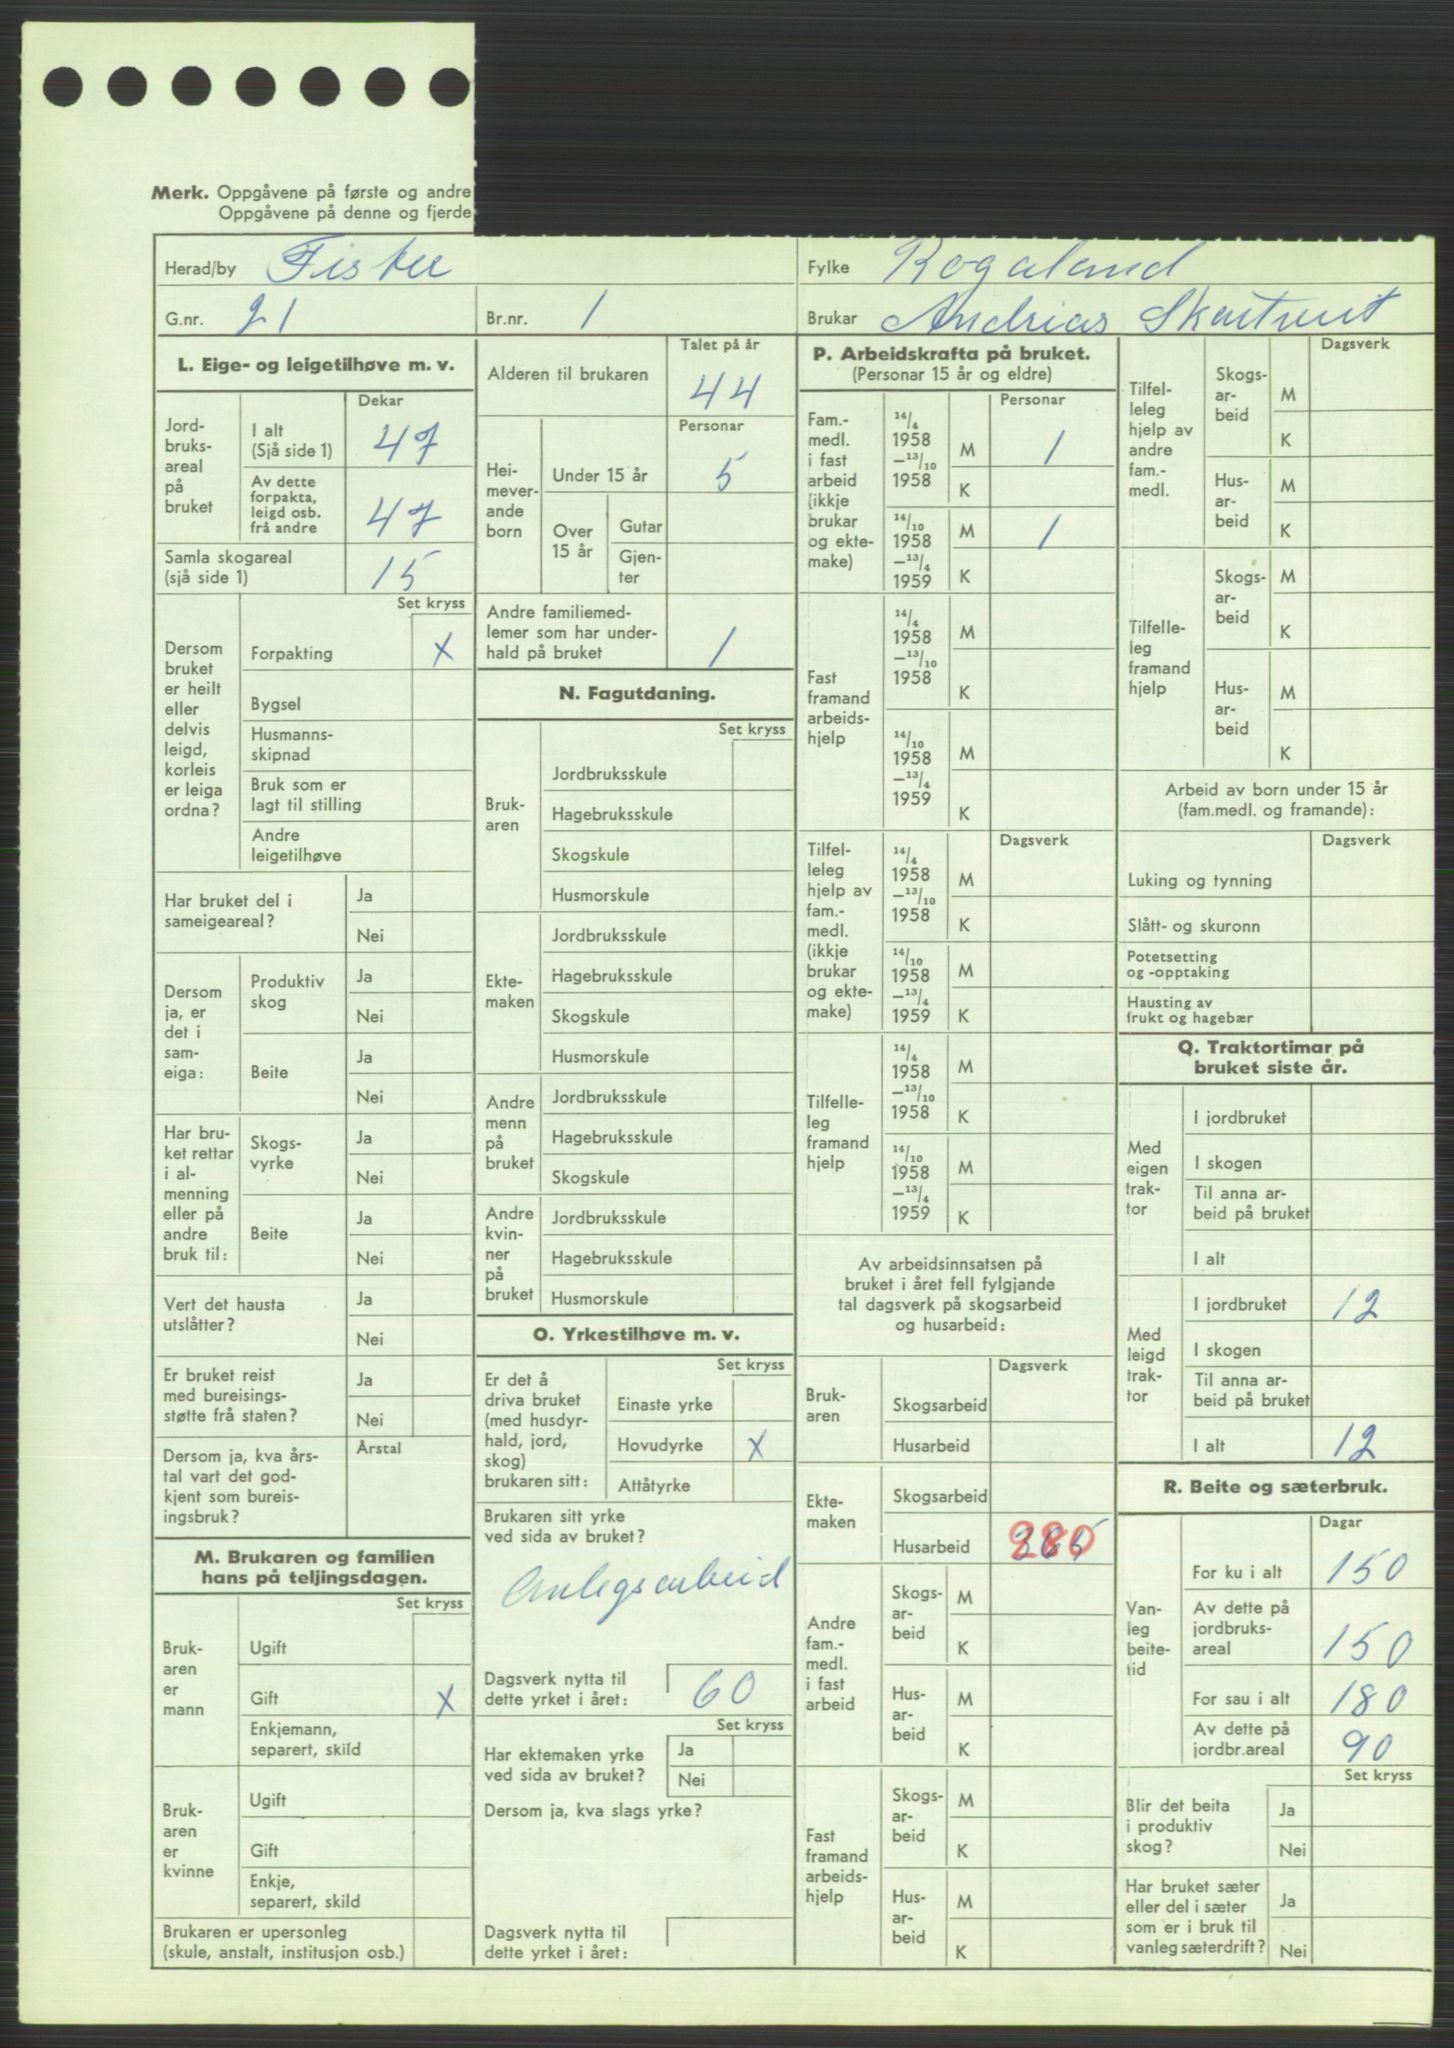 Merk. Oppgåvene på første og andre
Oppgåvene på denne og fjerde
Herad/by Fister
Fylke Rogaland
G.nr. 21
Br.nr. 1
Brukar Andrias
L. Eige- og leigetilhøve m. v.
Dekar
Jord-
bruks-
areal
på
bruket
I alt
(Sjå side 1) 47
Av dette
forpakta,
leigd osb.
frå andre 47
Samla skogareal
(sjå side 1) 15
Set kryss
Dersom
bruket
er heilt
eller
delvis
leigd,
korleis
er leiga
ordna?
Forpakting X
Bygsel
Husmanns-
skipnad
Bruk som er
lagt til stilling
Andre
leigetilhøve
Har bruket del i
sameigeareal?
Ja
Nei
Dersom
ja, er
det i
sam-
eiga:
Produktiv
skog
Ja
Nei
Beite
Ja
Nei
Har bru-
ket rettar
i al-
menning
eller på
andre
bruk til:
Skogs-
vyrke
Ja
Nei
Beite
Ja
Nei
Vert det hausta
utslåtter?
Ja
Nei
Er bruket reist
med bureisings-
støtte frå staten?
Ja
Nei
Dersom ja, kva års-
tal vart det god-
kjent som bureis-
ingsbruk?
Årstal
M. Brukaren og familien
hans på teljingsdagen.
Set kryss
Bruk-
aren
er
mann
Ugift
Gift X
Enkjemann,
separert, skild
Bruk-
aren
er
kvinne
Ugift
Gift
Enkje,
separert, skild
Brukaren er upersonleg
(skule, anstalt, institusjon osb.)
Talet på år
Alderen til brukaren 44
Personar
Hei-
mever-
ande
born
Under 15 år 5
Over
15 år
Gutar
Gjen-
ter
Andre familiemed-
lemer som har under-
hald på bruket 1
N. Fagutdaning.
Set kryss
Bruk-
aren
Jordbruksskule
Hagebruksskule
Skogskule
Husmorskule
Ekte-
maken
Jordbruksskule
Hagebruksskule
Skogskule
Husmorskule
Andre
menn
på
bruket
Jordbruksskule
Hagebruksskule
Skogskule
Andre
kvin-
ner
på
bruket
Jordbruksskule
Hagebruksskule
Husmorskule
O. Yrkestilhøve m. v.
Set kryss
Er det å
driva bruket
(med husdyr-
hald, jord,
skog)
brukaren sitt:
Einaste yrke
Hovudyrke X
Attåtyrke
Brukaren sitt yrke
ved sida av bruket?
Anlegsarbeid
Dagsverk nytta til
dette yrket i året: 60
Set kryss
Har ektemaken yrke
ved sida av bruket?
Ja
Nei
Dersom ja, kva slags yrke?
Dagsverk nytta til
dette yrket i året:
P. Arbeidskrafta på bruket.
(Personar 15 år og eldre)
Personar
Fam.-
medl.
i fast
arbeid
(ikkje
brukar
og ekte-
make)
14/4
1958
—13/10
1958
M 1
K
14/10
1958
—13/4
1959
M 1
K
Fast
framand
arbeids-
hjelp
14/4
1958
—13/10
1958
M
K
14/10
1958
—13/4
1959
M
K
Dagsverk
Tilfel-
leleg
hjelp av
fam.-
medl.
(ikkje
brukar
og ekte-
make)
14/4
1958
—13/10
1958
M
K
14/10
1958
—13/4
1959
M
K
Tilfelle-
leg
framand
hjelp
14/4
1958
—13/10
1958
M
K
14/10
1958
—13/4
1959
M
K
Av arbeidsinnsatsen på
bruket i året fell fylgjande
tal dagsverk på skogsarbeid
og husarbeid:
Dagsverk
Bruk-
aren
Skogsarbeid
Husarbeid
Ekte-
maken
Skogsarbeid
Husarbeid 365 280
Andre
fam.-
medl.
i fast
arbeid
Skogs-
ar-
beid
M
K
Hus-
ar-
beid
M
K
Fast
framand
arbeids-
hjelp
Skogs-
ar-
beid
M
K
Hus-
ar-
beid
M
K
Dagsverk
Tilfel-
leleg
hjelp av
andre
fam.-
medl.
Skogs-
ar-
beid
M
K
Hus-
ar-
beid
M
K
Tilfelle-
leg
framand
hjelp
Skogs-
ar-
beid
M
K
Hus-
ar-
beid
M
K
Arbeid av born under 15 år
(fam.medl. og framande):
Dagsverk
Luking og tynning
Slått- og skuronn
Potetsetting
og -opptaking
Hausting av
frukt og hagebær
Q. Traktortimar på
bruket siste år.
Med
eigen
trak-
tor
I jordbruket
I skogen
Til anna ar-
beid på bruket
I alt
Med
leigd
trak-
tor
I jordbruket 12
I skogen
Til anna ar-
beid på bruket
I alt 12
R. Beite og sæterbruk.
Dagar
Van-
leg
beite-
tid
For ku i alt 150
Av dette på
jordbruks-
areal 150
For sau i alt 180
Av dette på
jordbr.areal 90
Set kryss
Blir det beita
i produktiv
skog?
Ja
Nei
Har bruket sæter
eller del i sæter
som er i bruk til
vanleg sæterdrift?
Ja
Nei